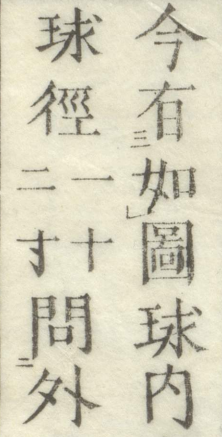 今有三如レ圖球内
球徑一十二寸問二外